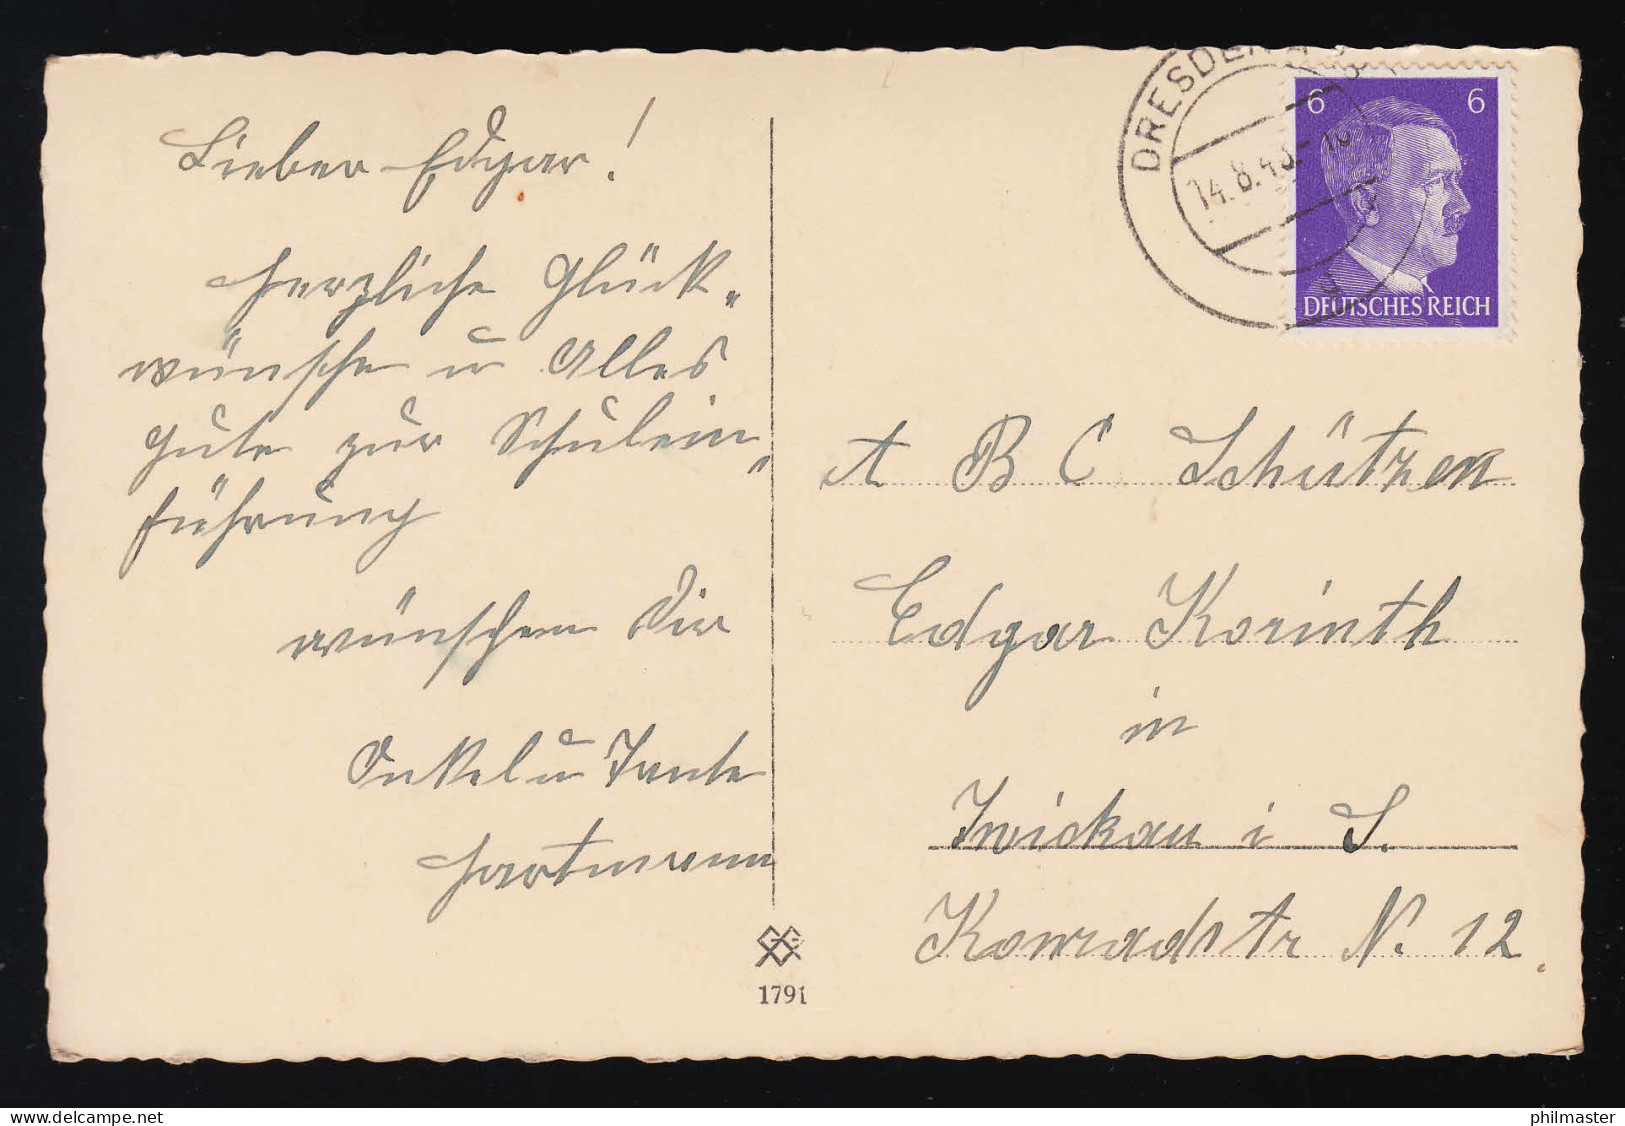 Lieber Edgar!
Herzliche Glück-
wünsche u Alles
Gute zur Schulein-
führung
wünschen Dir
Onkel u Tante
Hartmann
1791
DRESDEN
14.8.43.-18
6 6
DEUTSCHES REICH
A B C Schützen
Edgar Korinth
in
Zwickau i S.
Konradstr N. 12.
www.delcampe.net
philmaster